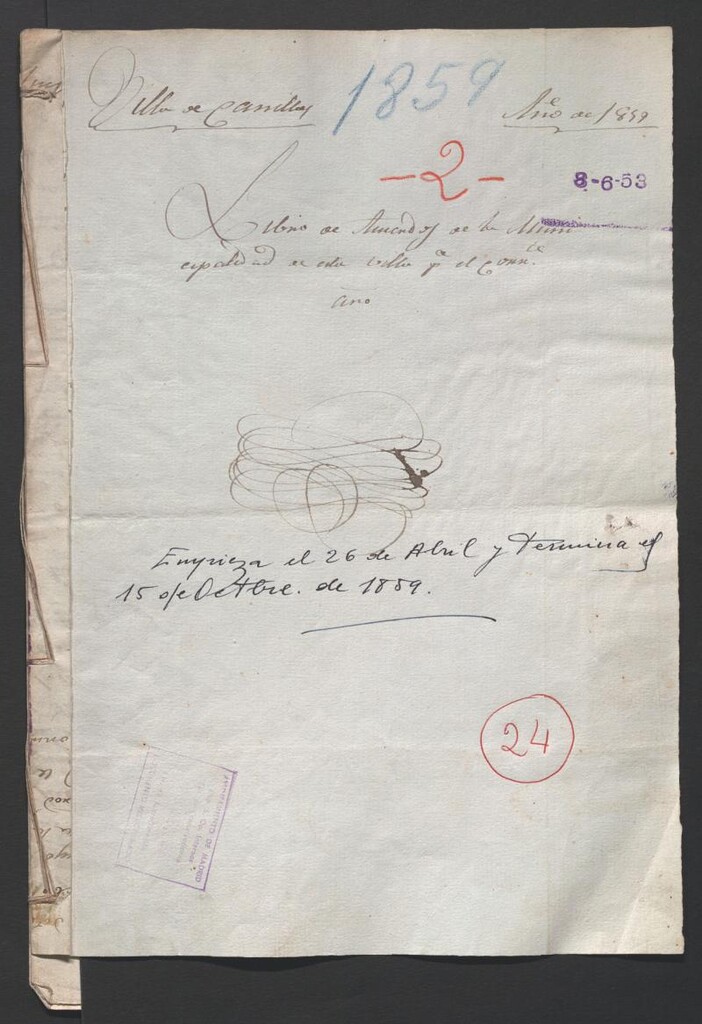 1859
Villa de Canillas
Año de 1859
-2-
8-6-53
Libro de Acuerdos de la Muni
cipalidad de esta villa pª el Corrte
año
Empieza el 26 de Abril y termina el
15 de Octbre. de 1859.
24
AYUNTAMIENTO DE MADRID